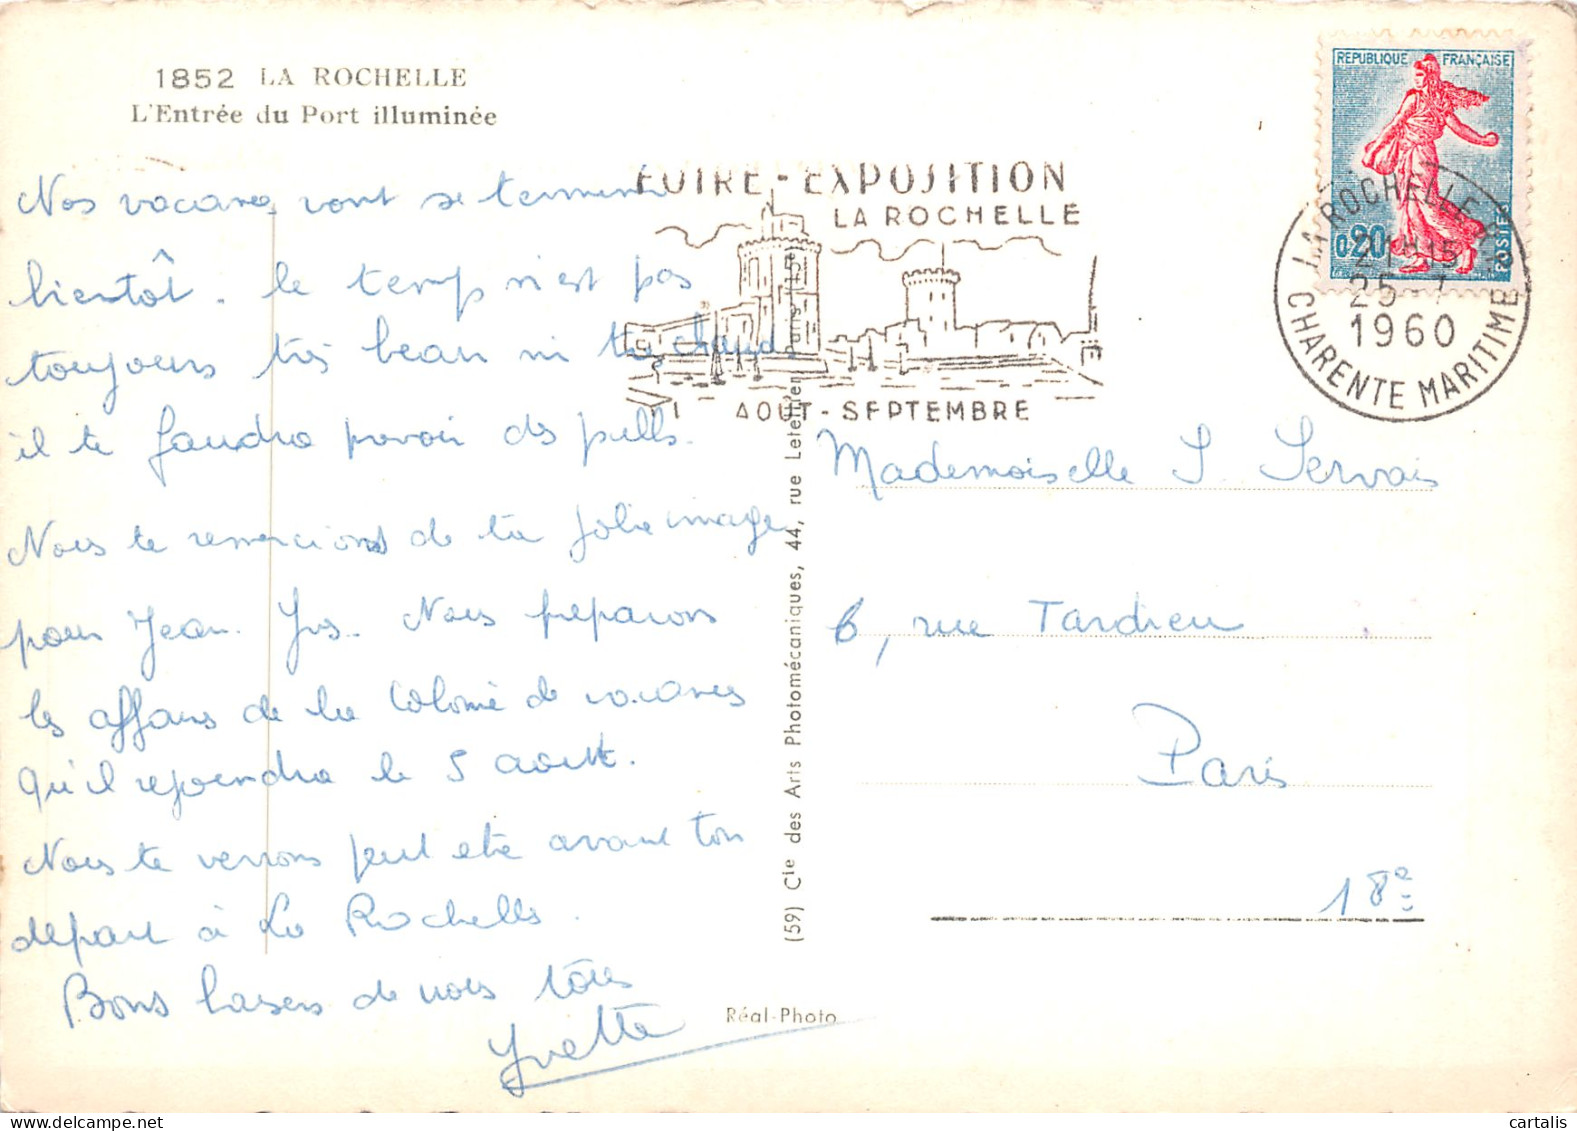 1852 LA ROCHELLE
L'Entrée du Port illuminée
Nos vacances vont se terminer
bientôt. le temps n'est pas
toujours très beau ni très chaud.
il te faudra prevoir des pulls.
Nous te remercions de ta jolie image
pour Jean-Yves. Nous preparons
les affaires de la colonie de vacances
qu'il rejoindra le 5 août.
Nous te verrons peut etre avant ton
départ à La Rochelle.
Bons baisers de nous tous
Yvette
FOIRE-EXPOSITION
LA ROCHELLE
AOUT-SEPTEMBRE
REPUBLIQUE FRANÇAISE
0,20
POSTES
LA ROCHELLE
21H15
25-7
1960
CHARENTE MARITIME
(59) Cie des Arts Photomécaniques, 44, rue Letellier, Paris-15e
Réal-Photo
Mademoiselle S. Servais
6, rue Tardieu
Paris
18e
cartalis